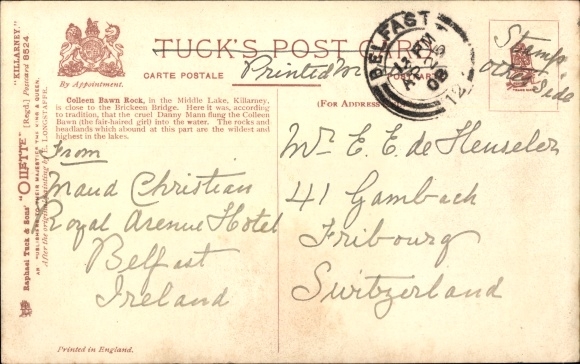 TUCK'S POST CARD
CARTE POSTALE
POSTCARD
By Appointment.
Printed
BELFAST
PM
08
12
Stamp
other Side
"KILLARNEY."
Postcard 8524
"OILETTE" [Regd.]
Raphael Tuck & Sons'
ART PUBLISHERS TO THEIR MAJESTIES THE KING & QUEEN.
After the original painting by E. LONGSTAFFE.
Colleen Bawn Rock, in the Middle Lake, Killarney,
is close to the Brickeen Bridge. Here it was, according
to tradition, that the cruel Danny Mann flung the Colleen
Bawn (the fair-haired girl) into the water. The rocks and
headlands which abound at this part are the wildest and
highest in the lakes.
(FOR ADDRESS
From
Maud Christian
Royal Avenue Hotel
Belfast
Ireland
Mr E. E. de Heuseler
41 Gambach
Fribourg
Switzerland
Printed in England.